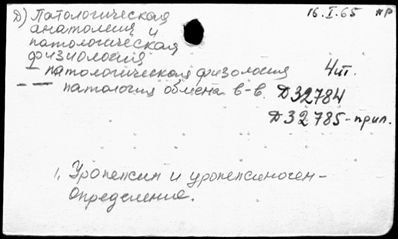 Д) Патологическая 16.I.65 пр
анатомия и
патологическая
физиология
— патологическая физология 4ш.
— — патология обмена в-в. Д32784
Д32785-прил.
1. Уропепсин и уропепсиноген-
определение.